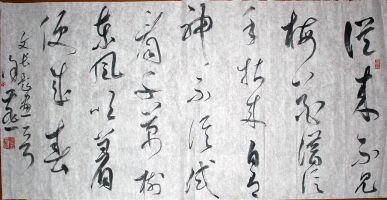 從來不見
梅花譜信
手拈來自有
神不信試
看千萬樹
東風吹着
便成春
文长题画一首